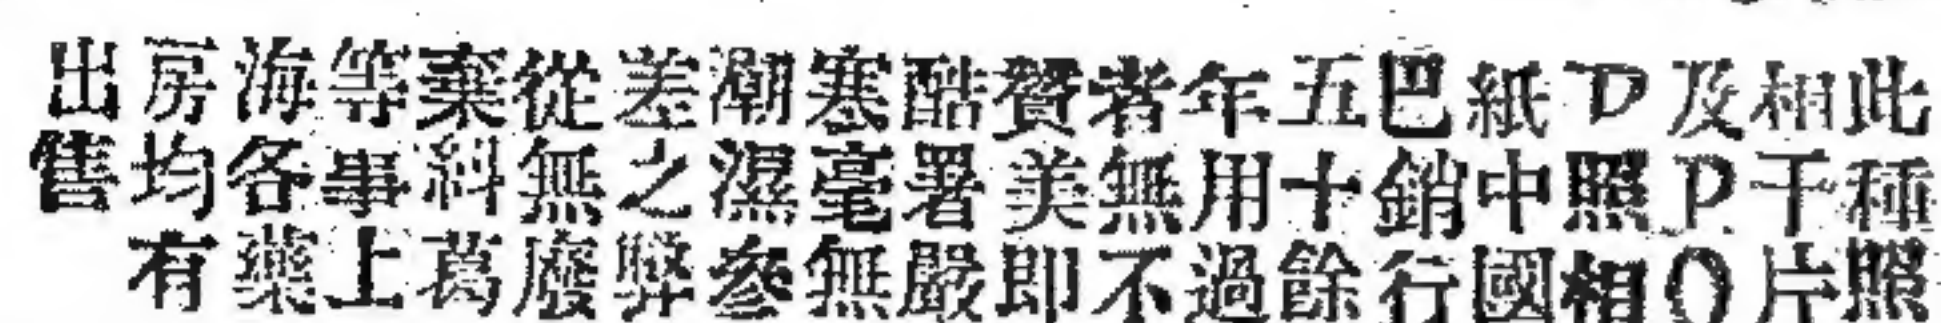 此種照
相干片
及P.O
P照相
紙中國
巴銷行
五十餘
年用過
者無不
贊美即
酷署嚴
寒毫無
潮濕參
差之弊
從無廢
棄糾葛
等事上
海各藥
房均有
出售